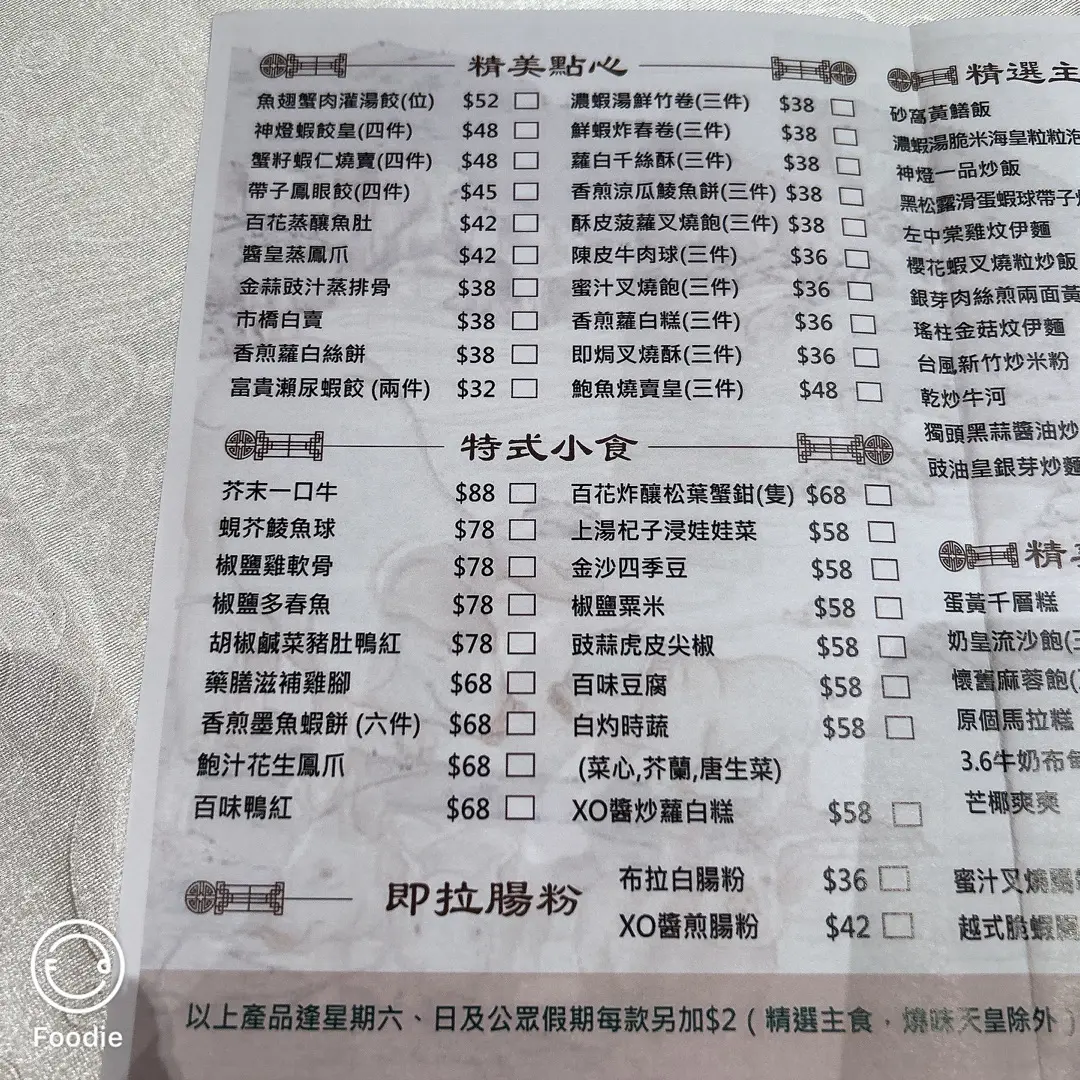 精美點心
魚翅蟹肉灌湯餃(位) $52
神燈蝦餃皇(四件) $48
蟹籽蝦仁燒賣(四件) $48
帶子鳳眼餃(四件) $45
百花蒸釀魚肚 $42
醬皇蒸鳳爪 $42
金蒜豉汁蒸排骨 $38
市橋白賣 $38
香煎蘿白絲餅 $38
富貴瀨尿蝦餃 (兩件) $32
濃蝦湯鮮竹卷(三件) $38
鮮蝦炸春卷(三件) $38
蘿白千絲酥(三件) $38
香煎涼瓜鯪魚餅(三件) $38
酥皮菠蘿叉燒飽(三件) $38
陳皮牛肉球(三件) $36
蜜汁叉燒飽(三件) $36
香煎蘿白糕(三件) $36
即焗叉燒酥(三件) $36
鮑魚燒賣皇(三件) $48
特式小食
芥末一口牛 $88
蜆芥鯪魚球 $78
椒鹽雞軟骨 $78
椒鹽多春魚 $78
胡椒鹹菜豬肚鴨紅 $78
藥膳滋補雞腳 $68
香煎墨魚蝦餅 (六件) $68
鮑汁花生鳳爪 $68
百味鴨紅 $68
百花炸釀松葉蟹鉗(隻) $68
上湯杞子浸娃娃菜 $58
金沙四季豆 $58
椒鹽粟米 $58
豉蒜虎皮尖椒 $58
百味豆腐 $58
白灼時蔬 $58
(菜心,芥蘭,唐生菜)
XO醬炒蘿白糕 $58
即拉腸粉
布拉白腸粉 $36
XO醬煎腸粉 $42
精選主
砂窩黃鱔飯
濃蝦湯脆米海皇粒粒泡
神燈一品炒飯
黑松露滑蛋蝦球帶子
左中棠雞炆伊麵
櫻花蝦叉燒粒炒飯
銀芽肉絲煎兩面黃
瑤柱金菇炆伊麵
台風新竹炒米粉
乾炒牛河
獨頭黑蒜醬油炒
豉油皇銀芽炒麵
精
蛋黃千層糕
奶皇流沙飽(三
懷舊麻蓉飽(
原個馬拉糕
3.6牛奶布甸
芒椰爽爽
蜜汁叉燒腸
越式脆蝦腸
以上產品逢星期六、日及公眾假期每款另加$2 ( 精選主食，燒味天皇除外 )
Foodie